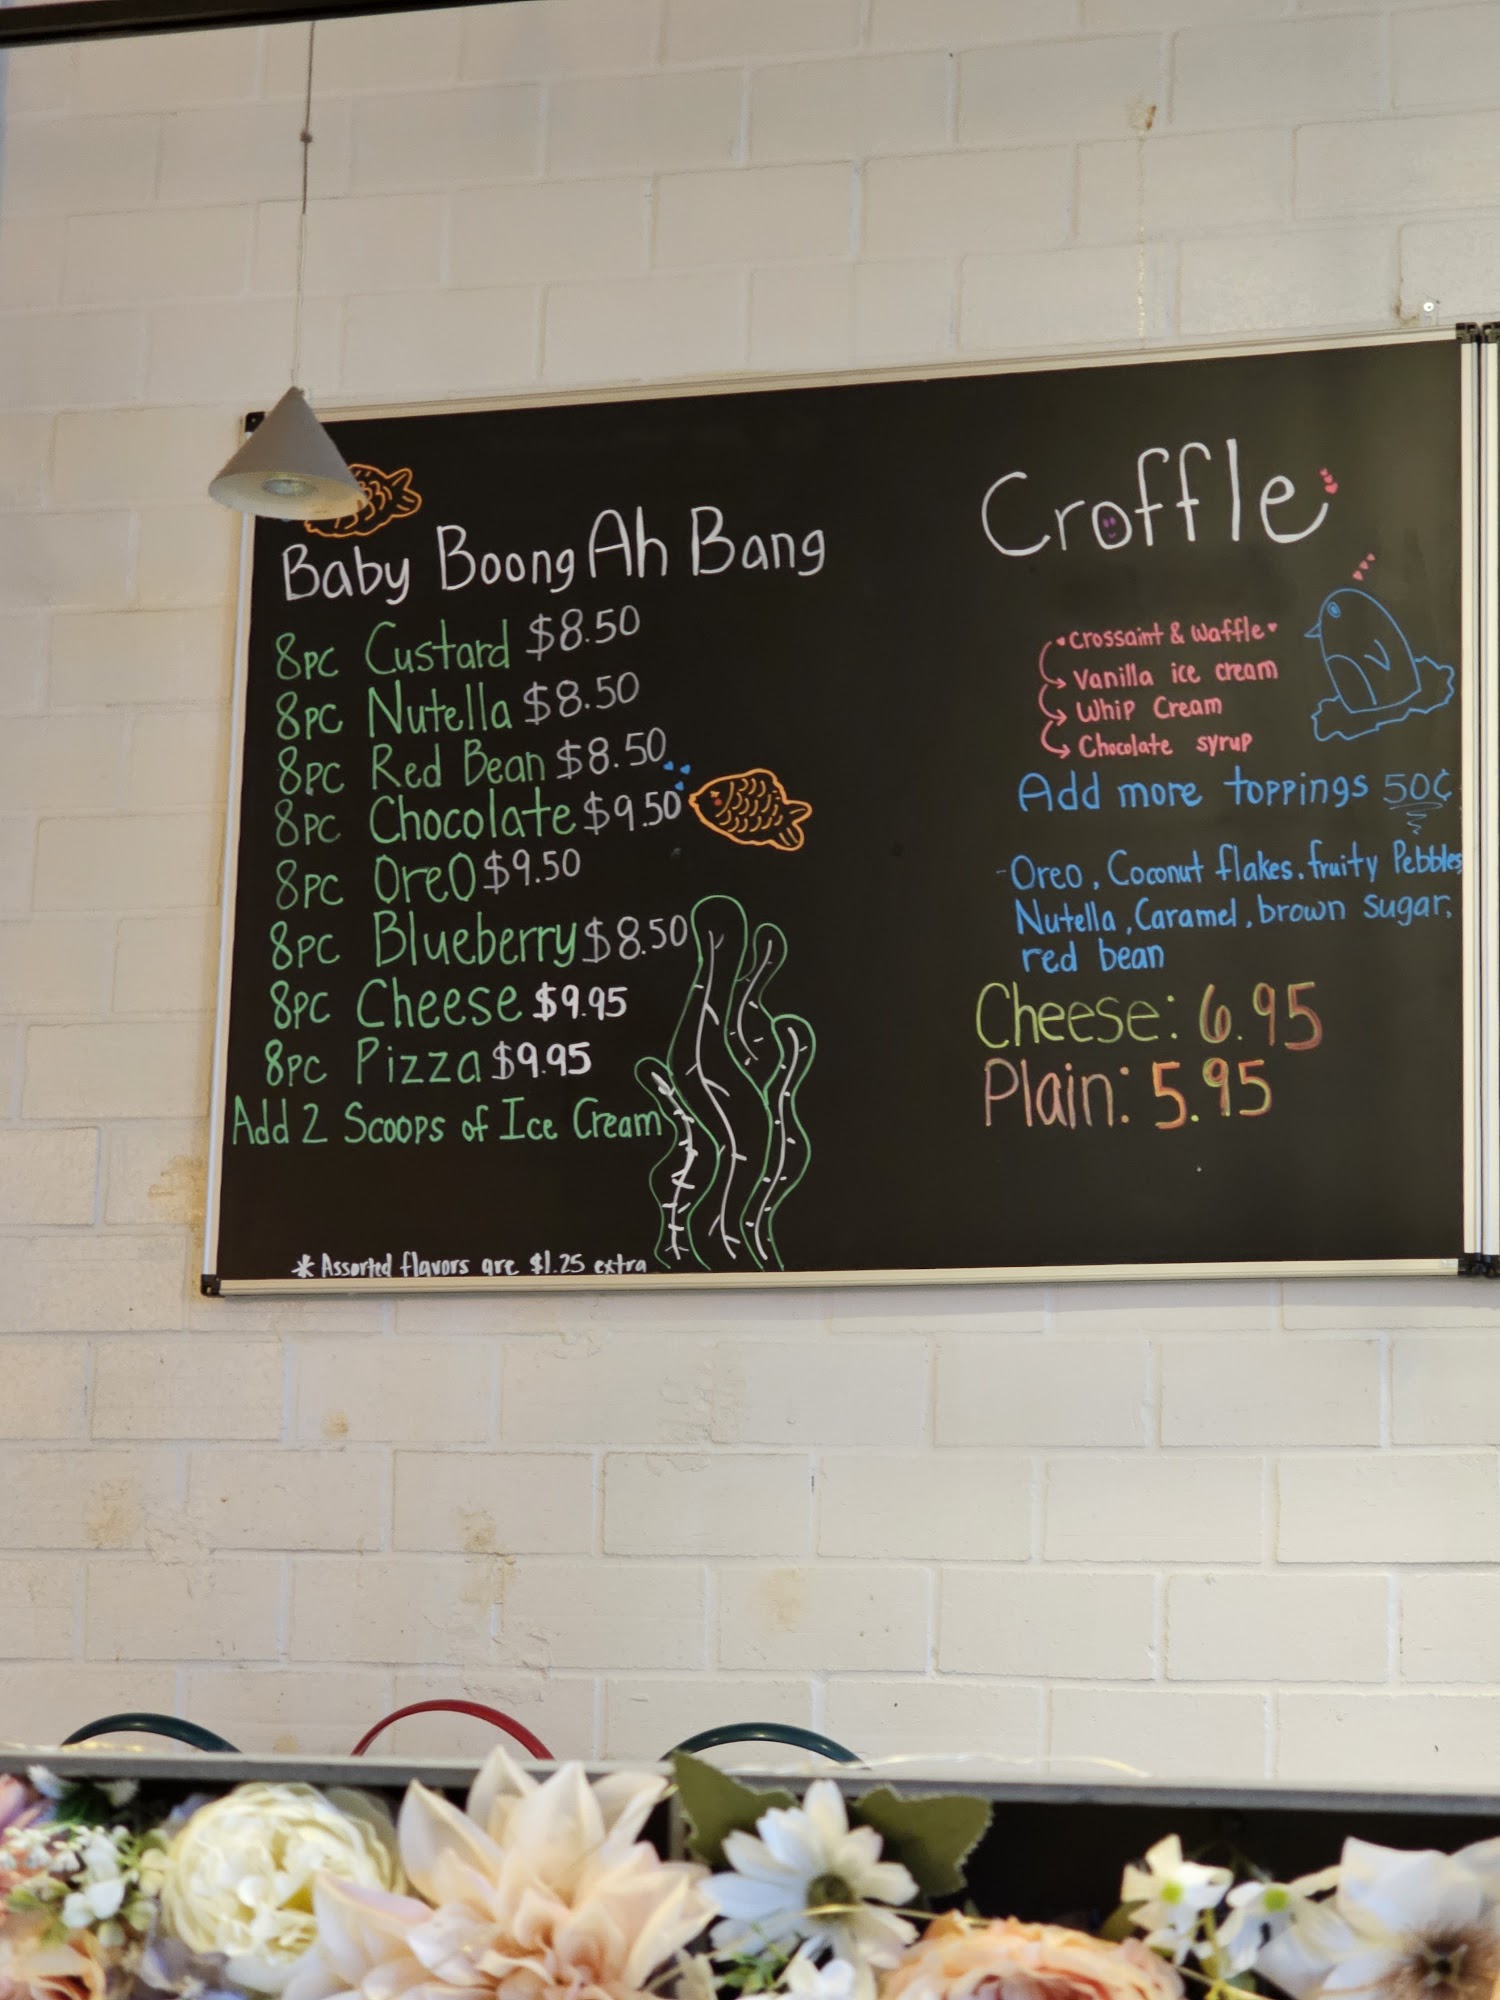 Baby Boong Ah Bang
8PC Custard $8.50
8PC Nutella $8.50
8PC Red Bean $8.50
8PC Chocolate $9.50
8PC OreO $9.50
8PC Blueberry $8.50
8PC Cheese $9.95
8PC Pizza $9.95
Add 2 Scoops of Ice Cream
* Assorted flavors are $1.25 extra
Croffle
Crossaint & Waffle
Vanilla ice cream
Whip Cream
Chocolate syrup
Add more toppings 50¢
- Oreo, Coconut flakes, fruity Pebbles,
Nutella, Caramel, brown sugar,
red bean
Cheese: 6.95
Plain: 5.95